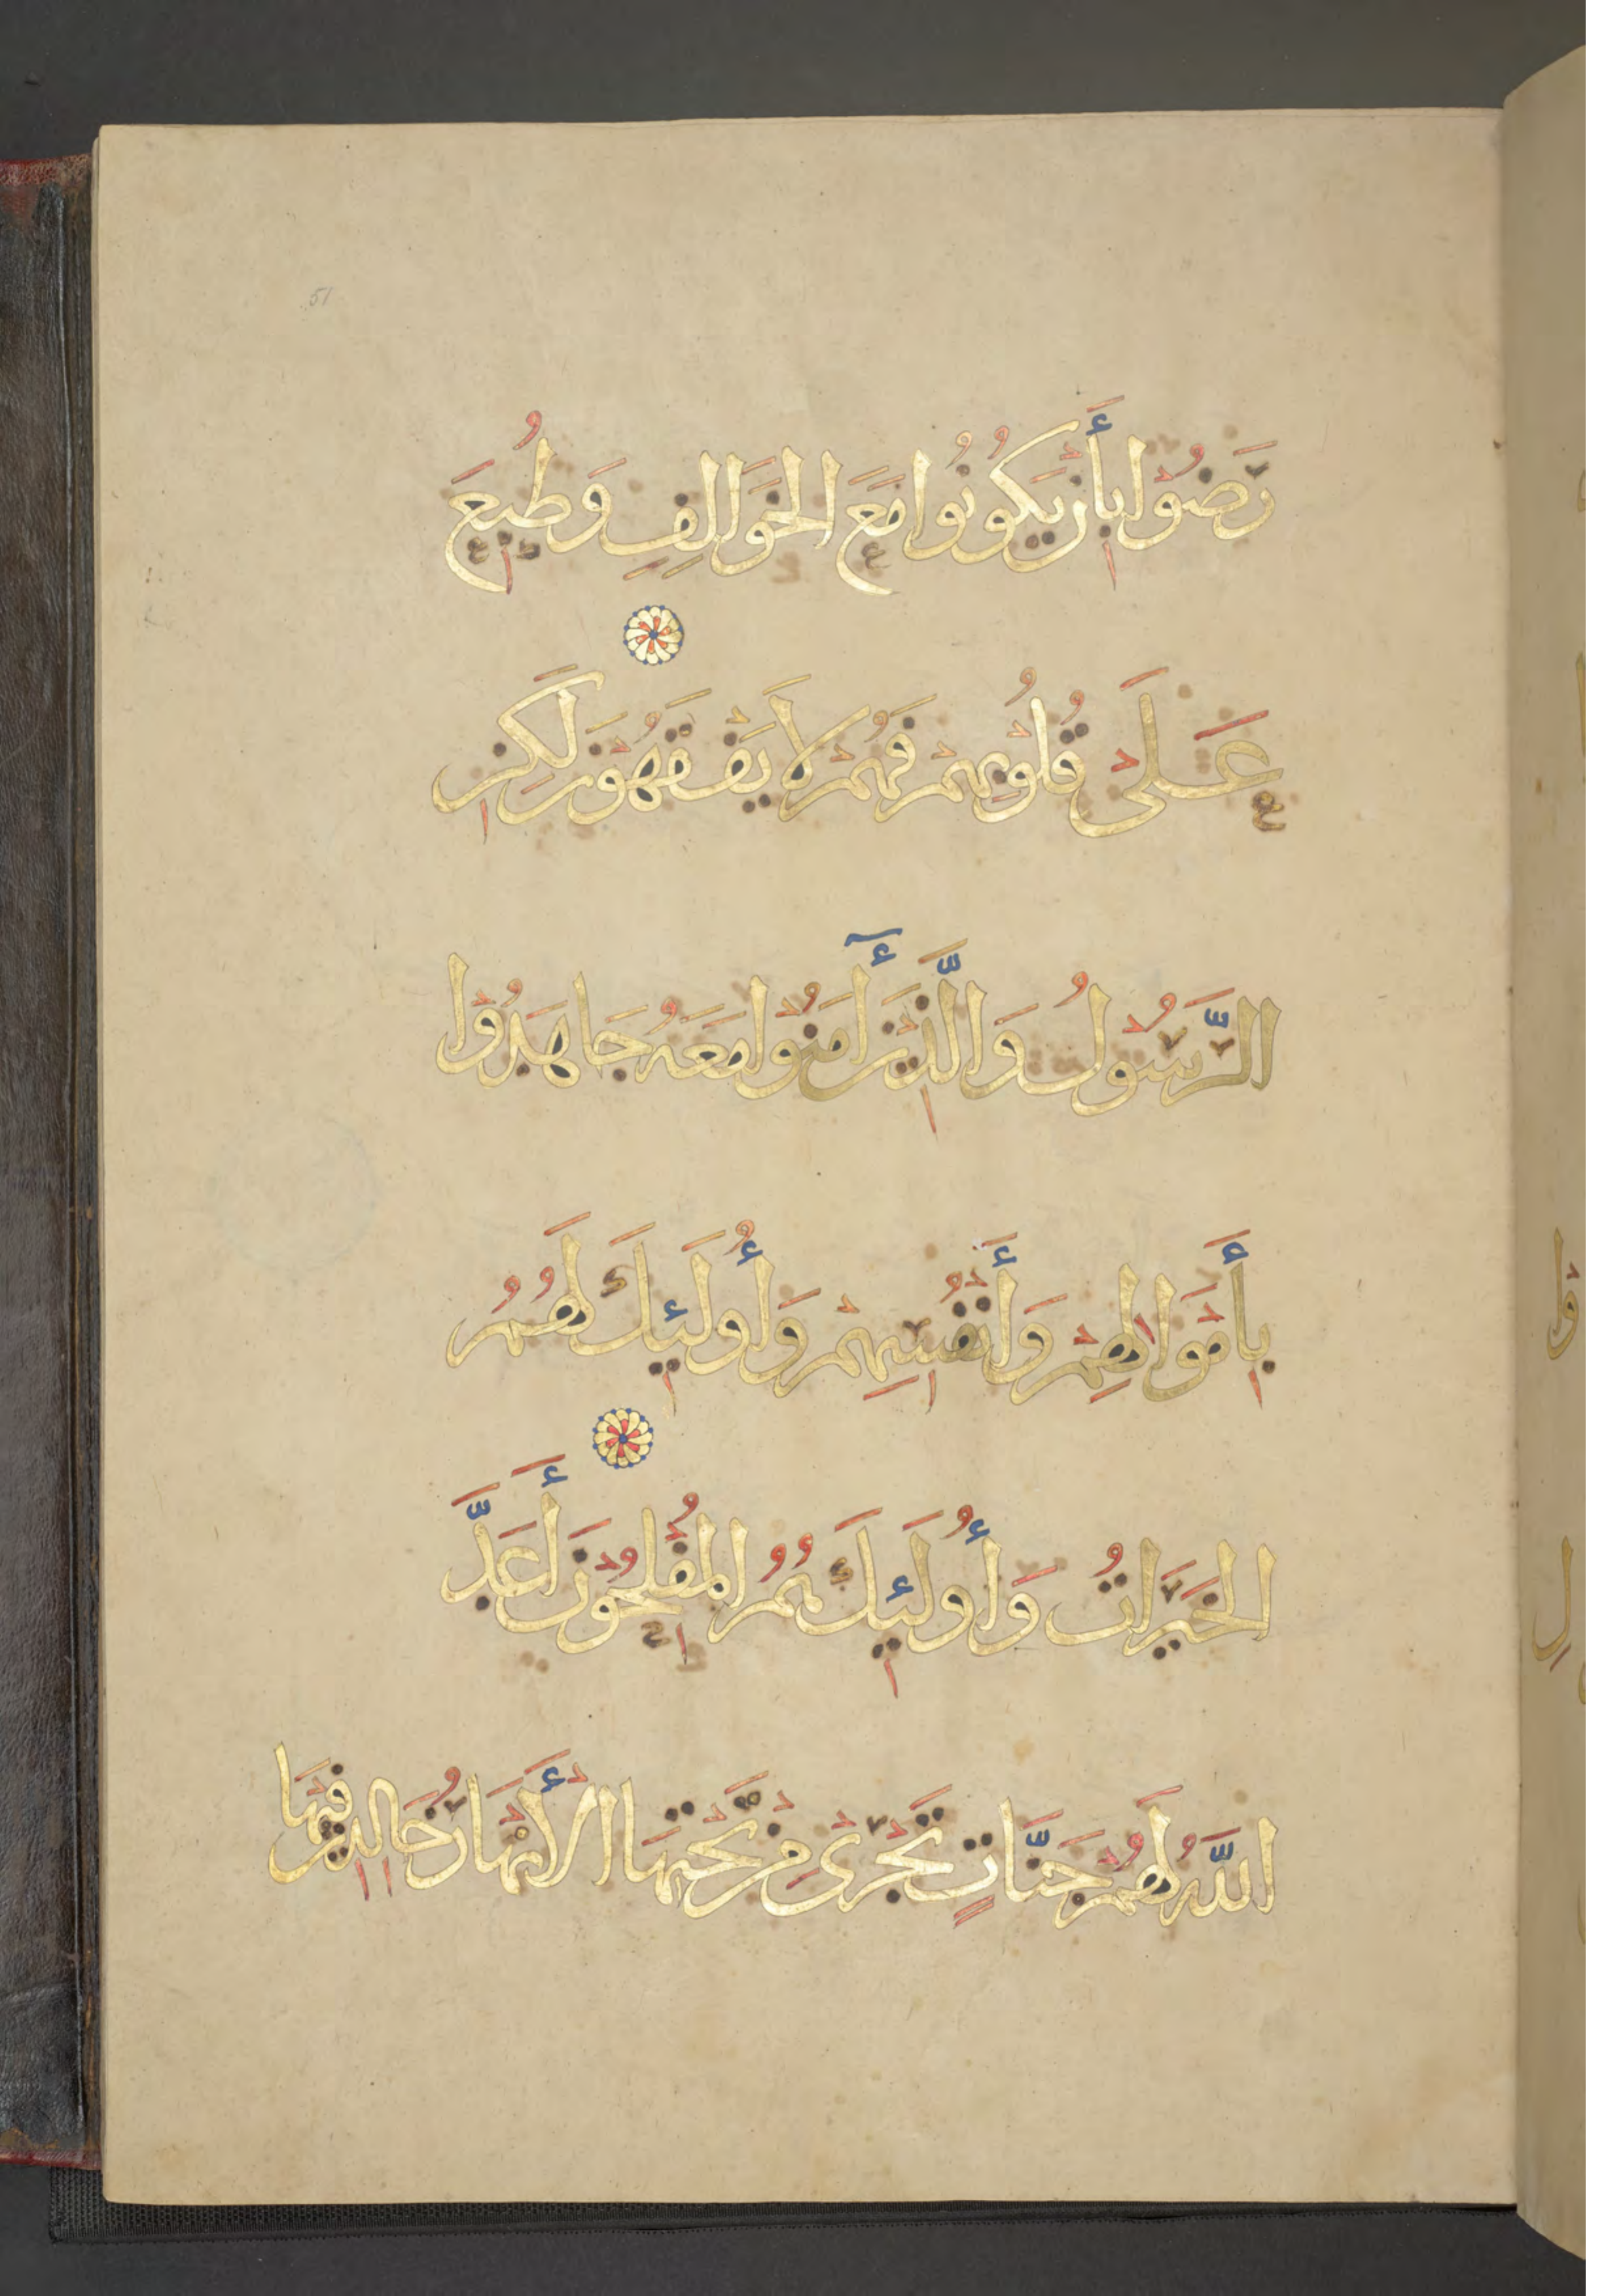 51
رَضُوْا بِأَنْ يَكُوُنُوا مَعَ الْخَوَالِفِ وَطُبِعَ
عَلَىْ قُلُوُبِهِمْ فَهُمْ لَا يَفْقَهُوْنَ لَكِنِ
الرَّسُوْلُ وَالَّذِيْنَ أٓمَنُوْا مَعَهُ جَاهَدُوْا
بِأَمْوَالِهِمْ وَأَنْفُسِهِمْ وَأُولَئِكَ لَهُمُ
الْخَيْرَاتُ وَأُولَئِكَ هُمُ الْمُفْلِحُوْنَ أَعَدَّ
اللَّهُ لَهُمْ جَنَّاتٍ تَجْرِىْ مِنْ تَحْتِهَا الْأَنْهَارُ خَالِدِيْنَ فِيْهَا